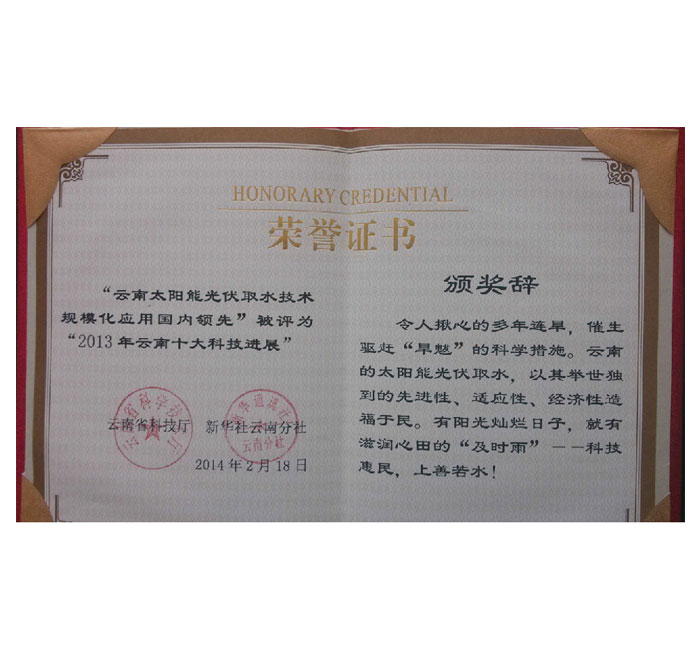 HONORARY CREDENTIAL
荣誉证书
“云南太阳能光伏取水技术
规模化应用国内领先”被评为
“2013年云南十大科技进展”
云南省科技厅 新华社云南分社
2014年2月18日
颁奖辞
令人揪心的多年连旱，催生
驱赶“旱魃”的科学措施。云南
的太阳能光伏取水，以其举世独
到的先进性、适应性、经济性造
福于民。有阳光灿烂日子，就有
滋润心田的“及时雨”——科技
惠民，上善若水！
云南省科学技术厅
新华通讯社
云南分社